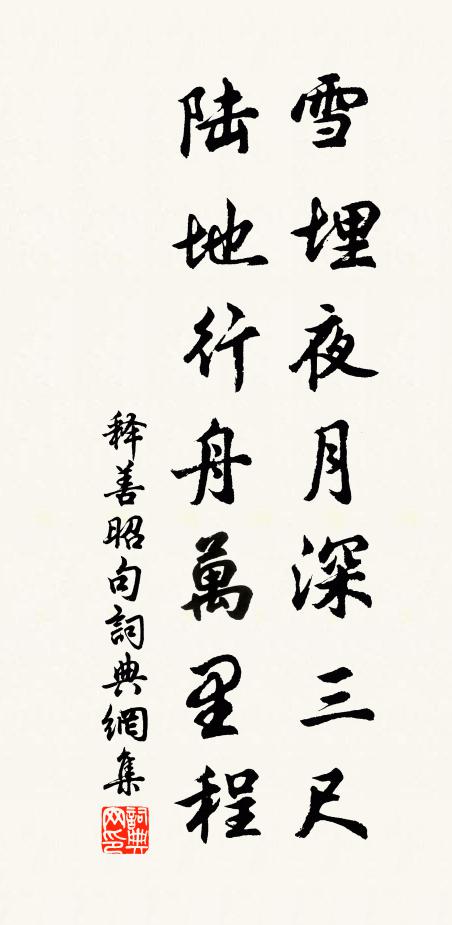 雪埋夜月深三尺
陸地行舟萬里程
释善昭句詞典網集
詞典网印